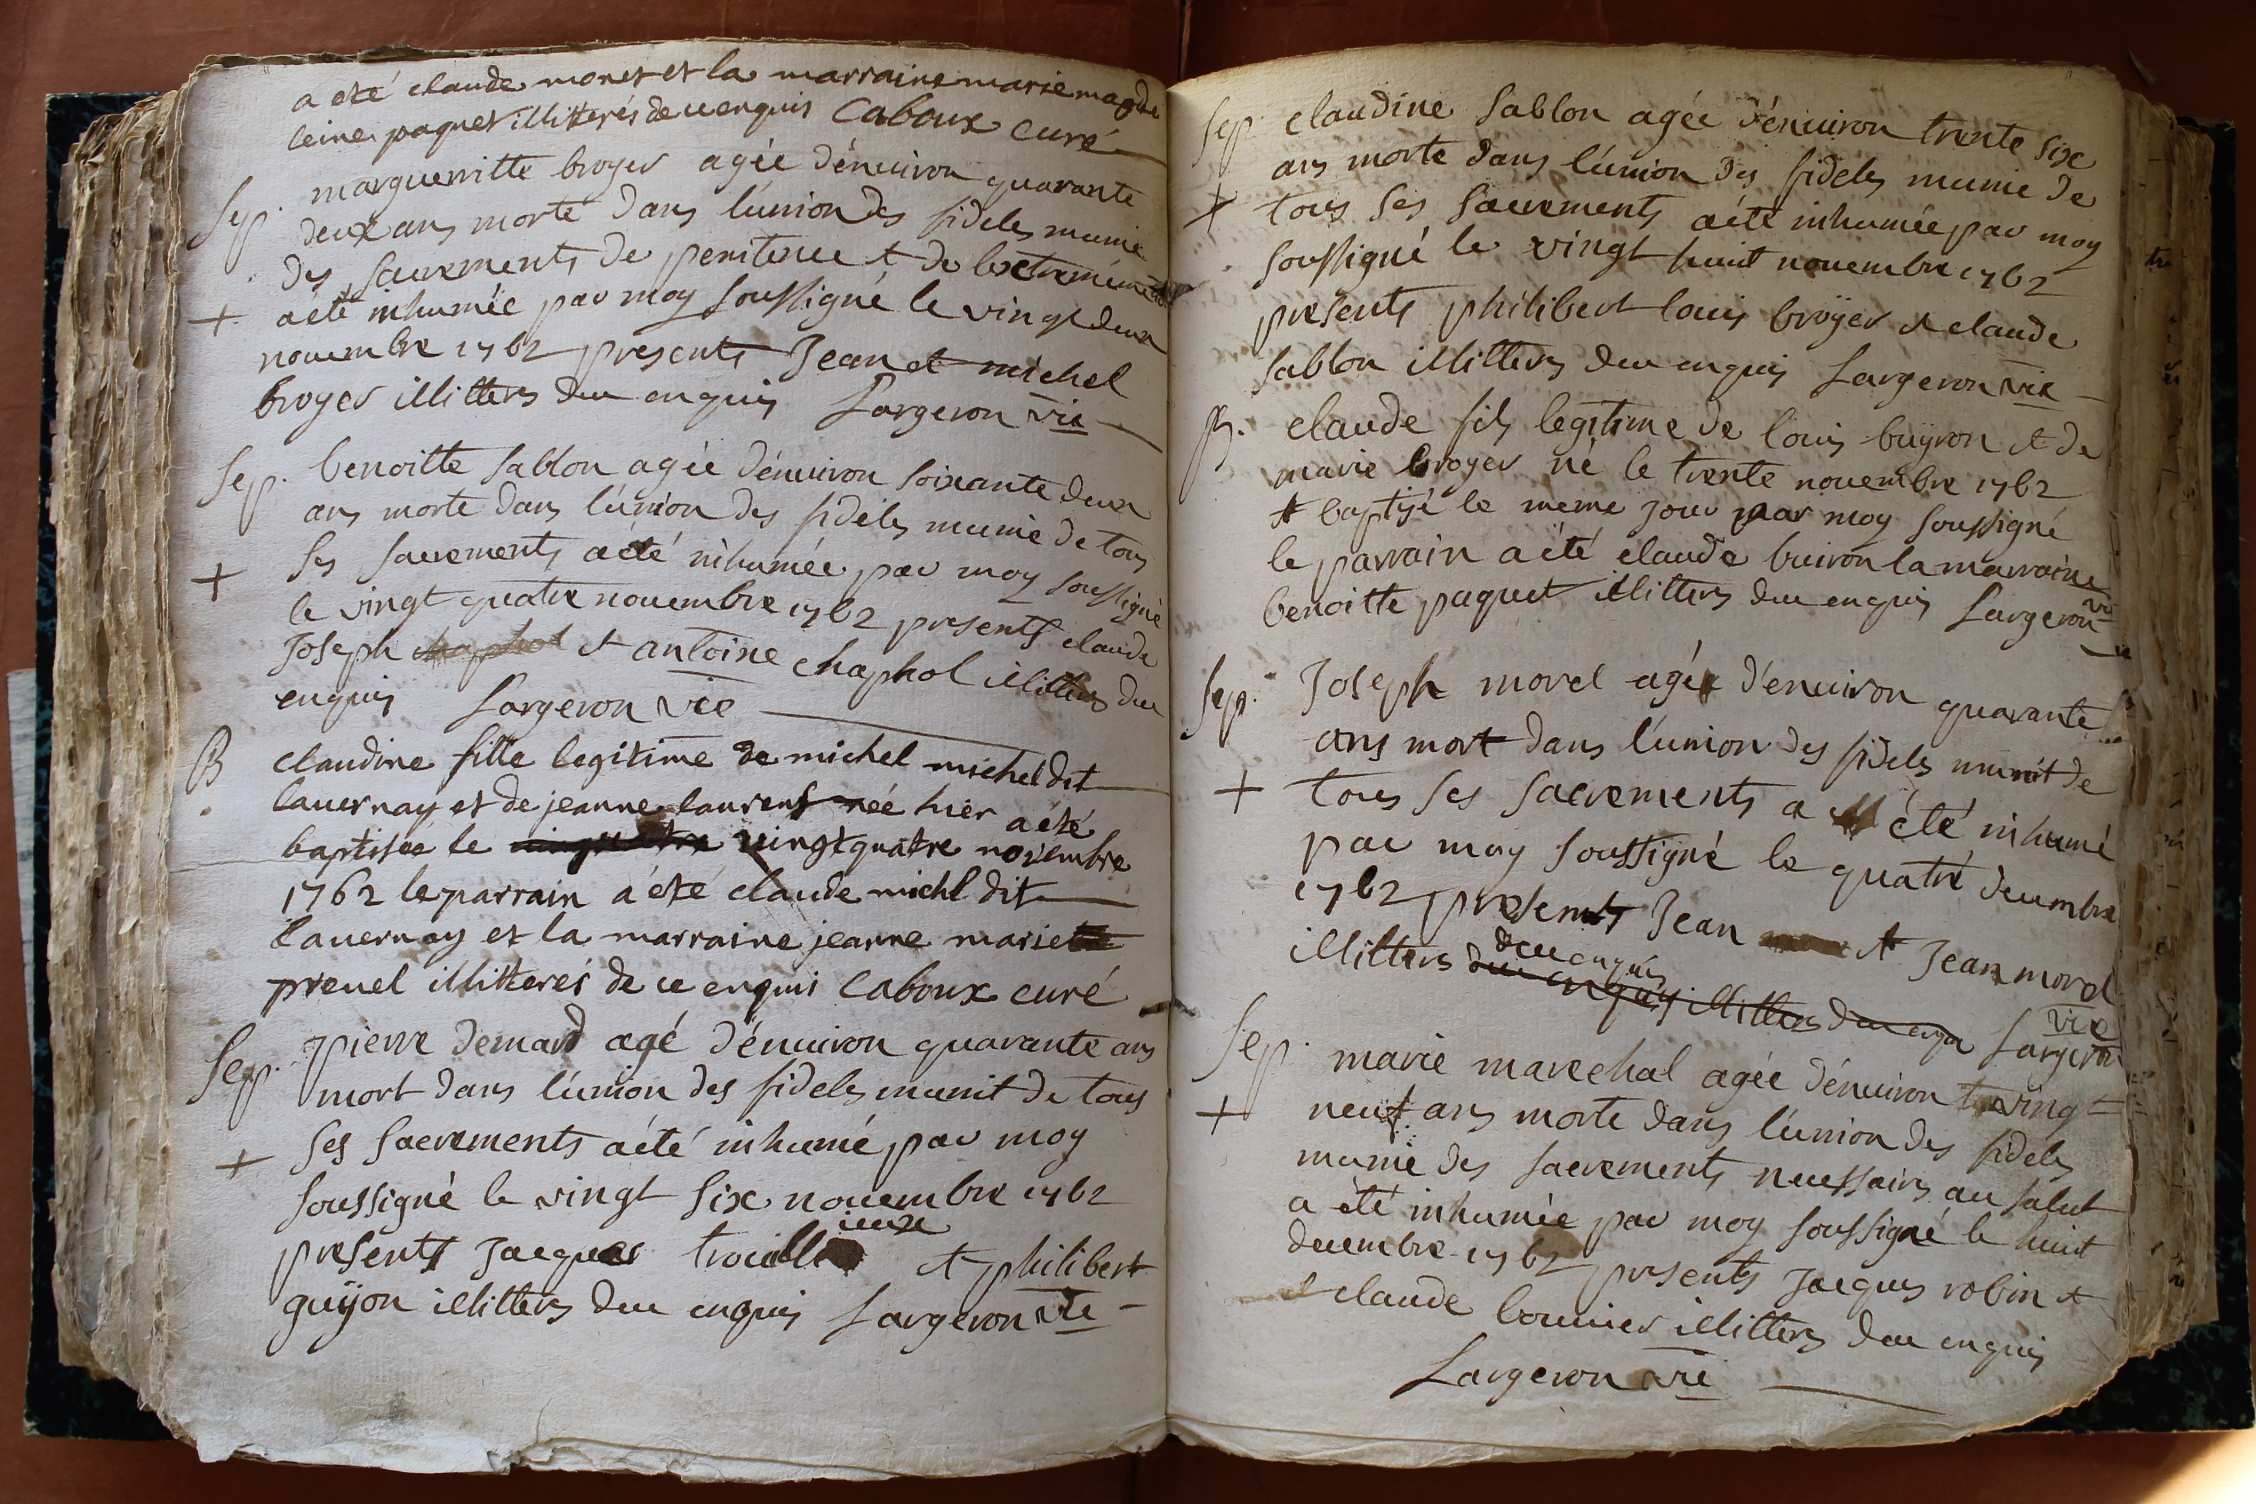 a eté claude moret et la marraine marie magde
leine paquet illitterés de ce enquis Caboux curé
Sep. marguerritte broyer agée d'énuiron quarante
deux ans morte dans l'union des fideles munie
des sacrements de penitence et de l'extreme
+ a été inhumée par moy soussigné le vingt deux
nouembre 1762 presents Jean et michel
broyer illitters de ce enquis Largeron vic
Sep. benoitte sablon agée d'énuiron soixante deux
ans morte dans l'union des fideles munie de tous
+ ses sacrements a été inhumée par moy soussigné
le vingt quatre nouembre 1762 presents claude
Joseph chaphol et antoine chaphol illitters de ce
enquis Largeron vic
B claudine fille legitime de michel michel dit
lauernay et de jeanne laurent née hier a été
baptisée le vingt quatre novembre
1762 le parrain a été claude michl dit
lauernay et la marraine jeanne marie
preuel illitterés de ce enquis Caboux curé
Sep. pierre demard agé d'énuiron quarante ans
mort dans l'union des fideles munit de tous
+ ses sacrements a été inhumé par moy
soussigné le vingt six nouembre 1762
ieux
presents Jacques trouill et philibert
guÿon illitters de ce enquis Largeron vic
Sep. claudine sablon agée d'énuiron trente six
ans morte dans l'union des fideles munie de
+ tous ses sacrements a été inhumée par moy
soussigné le vingt huit nouembre 1762
presents philibert louis broÿer et claude
sablon illitters de ce enquis Largeron vic
B. claude fils legitime de louis buÿron et de
marie broyer né le trente nouembre 1762
et baptisé le meme jour par moy soussigné
le parrain a été claude buiron la marraine
benoitte paquet illitters de ce enquis Largeron vic
Sep. Joseph morel agé d'énuiron quarante
ans mort dans l'union des fideles munit de
+ tous ses sacrements a été inhumé
par moy soussigné le quatre decembre
1762 presents Jean et Jean morel
de ce enquis
illitters de ce enquis illitters de ce enqu Largeron vic
Sep. marie marechal agée d'énuiron vingt
+ neuf ans morte dans l'union des fideles
munie des sacrements necessaires au salut
a été inhumée par moy soussigné le huit
decembre 1762 presents Jacques robin et
claude bouuier illitters de ce enquis
Largeron vic